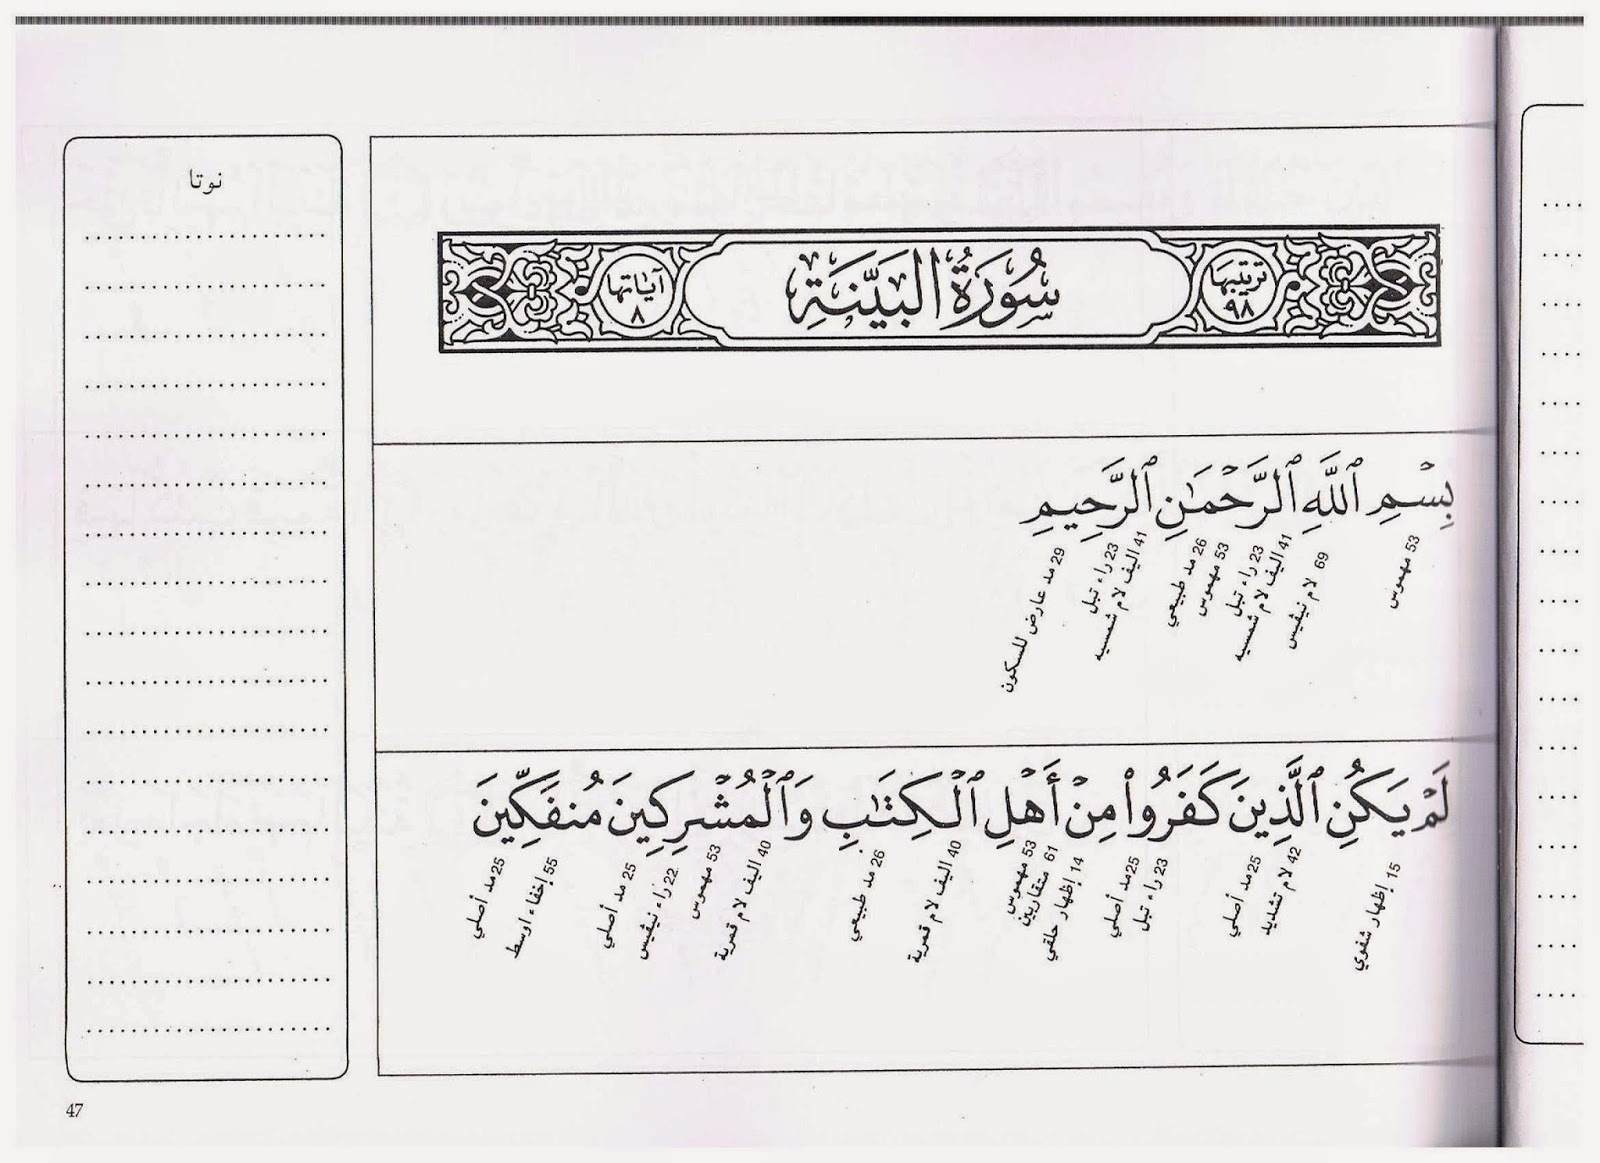 ترتيبها
٩٨
سُورَةُ البَيِّنَةِ
آياتها
٨
بِسْمِ ٱللَّهِ ٱلرَّحْمَٰنِ ٱلرَّحِيمِ
53 مهموس
69 لام نيڤيس
41 اليف لام شمسيه
23 راء تبل
53 مهموس
26 مد طبيعي
41 اليف لام شمسيه
23 راء تبل
29 مد عارض للسكون
لَمْ يَكُنِ ٱلَّذِينَ كَفَرُوا۟ مِنْ أَهْلِ ٱلْكِتَٰبِ وَٱلْمُشْرِكِينَ مُنفَكِّينَ
15 إظهار شفوي
42 لام تشديد
25 مد أصلي
23 راء تبل
25 مد أصلي
14 إظهار حلقي
61 متقاربين
53 مهموس
40 اليف لام قمرية
26 مد طبيعي
40 اليف لام قمرية
53 مهموس
22 راء نيڤيس
25 مد أصلي
55 إخفاء اوسط
25 مد أصلي
نوتا
47